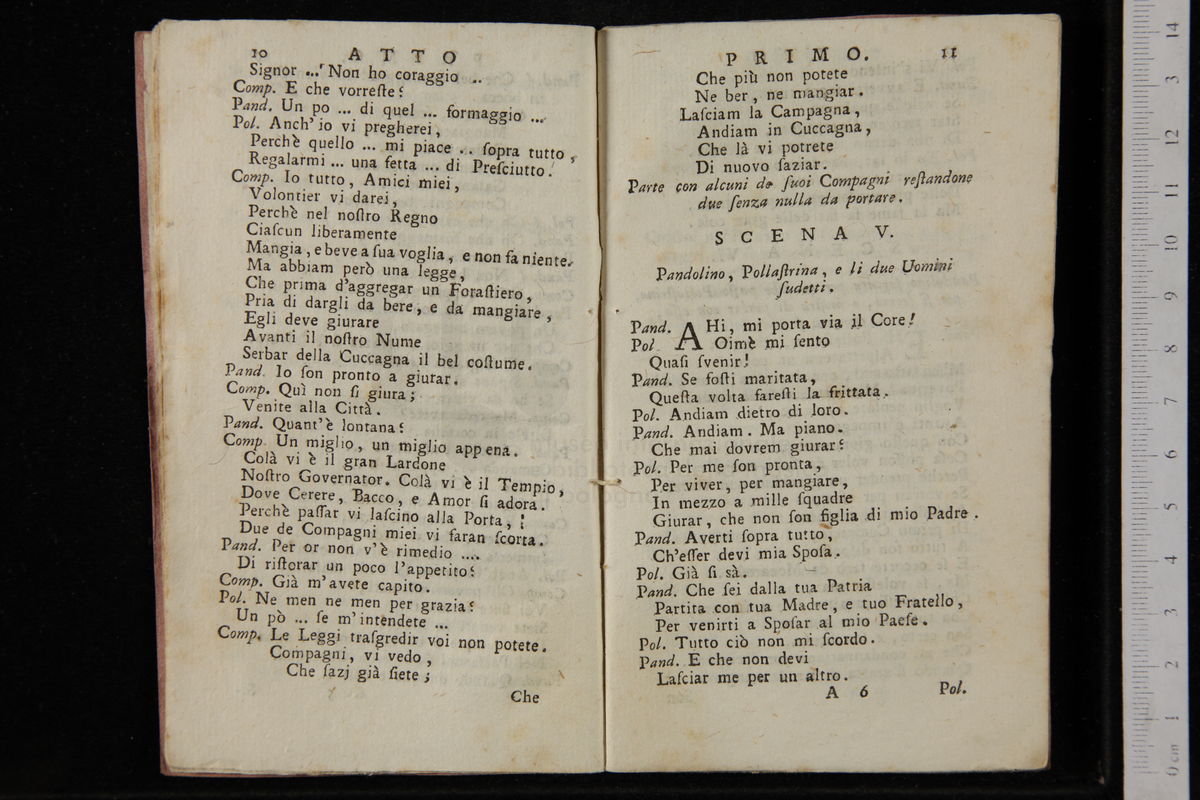 10 ATTO
Signor ... Non ho coraggio ...
Comp. E che vorreſte?
Pand. Un po ... di quel ... formaggio ...
Pol. Anch' io vi pregherei,
Perchè quello ... mi piace .. ſopra tutto,
Regalarmi ... una fetta ... di Preſciutto.
Comp. Io tutto, Amici miei,
Volontier vi darei,
Perchè nel noſtro Regno
Ciaſcun liberamente
Mangia, e beve a ſua voglia, e non fa niente.
Ma abbiam però una legge,
Che prima d'aggregar un Foraſtiero,
Pria di dargli da bere, e da mangiare,
Egli deve giurare
Avanti il noſtro Nume
Serbar della Cuccagna il bel coſtume.
Pand. Io ſon pronto a giurar.
Comp. Quì non ſi giura;
Venite alla Città.
Pand. Quant'è lontana?
Comp. Un miglio, un miglio appena.
Colà vi è il gran Lardone
Noſtro Governator. Colà vi è il Tempio,
Dove Cerere, Bacco, e Amor ſi adora.
Perchè paſſar vi laſcino alla Porta,
Due de Compagni miei vi faran ſcorta.
Pand. Per or non v'è rimedio ....
Di riſtorar un poco l'appetito?
Comp. Già m'avete capito.
Pol. Ne men ne men per grazia?
Un pò ... ſe m'intendete ...
Comp. Le Leggi traſgredir voi non potete.
Compagni, vi vedo,
Che ſazj già ſiete;
Che
PRIMO. 11
Che più non potete
Ne ber, ne mangiar.
Laſciam la Campagna,
Andiam in Cuccagna,
Che là vi potrete
Di nuovo ſaziar.
Parte con alcuni de ſuoi Compagni reſtandone
due ſenza nulla da portare.
SCENA V.
Pandolino, Pollaſtrina, e li due Uomini
ſudetti.
Pand. AHi, mi porta via il Core!
Pol. Oimè mi ſento
Quaſi ſvenir!
Pand. Se foſti maritata,
Queſta volta fareſti la frittata.
Pol. Andiam dietro di loro.
Pand. Andiam. Ma piano.
Che mai dovrem giurar?
Pol. Per me ſon pronta,
Per viver, per mangiare,
In mezzo a mille ſquadre
Giurar, che non ſon figlia di mio Padre.
Pand. Averti ſopra tutto,
Ch'eſſer devi mia Spoſa.
Pol. Già ſi sà.
Pand. Che ſei dalla tua Patria
Partita con tua Madre, e tuo Fratello,
Per venirti a Spoſar al mio Paeſe.
Pol. Tutto ciò non mi ſcordo.
Pand. E che non devi
Laſciar me per un altro.
A 6 Pol.
0 cm 1 2 3 4 5 6 7 8 9 10 11 12 13 14